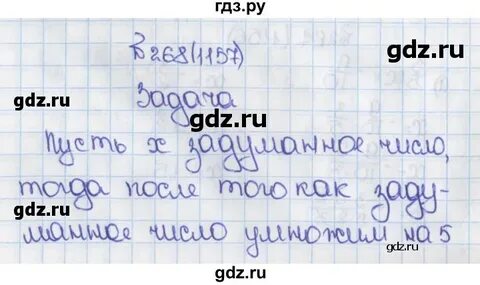 гдз.ру
В 268(1157)
gdz.ru gdz.ru
Задача
Пусть x задуманное число,
gdz.ru gdz.ru
тогда после того как заду-
gdz.ru gdz.ru
манное число умножим на 5
gdz.ru